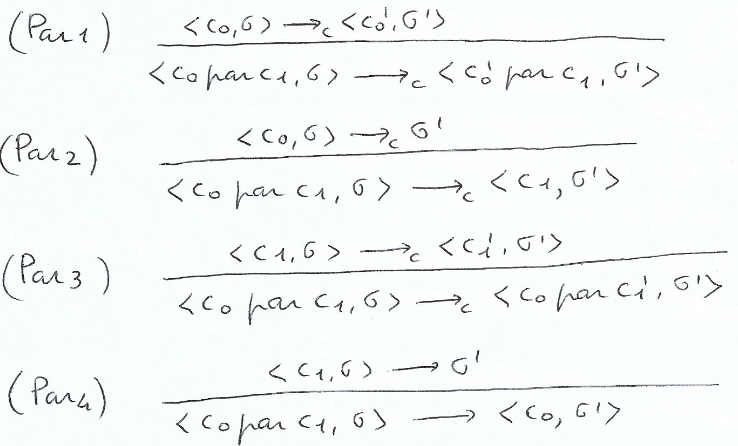 (Par1) <c0,σ> →c <c0',σ'>
<c0 par c1, σ> →c <c0' par c1, σ'>
(Par2) <c0,σ> →c σ'
<c0 par c1, σ> →c <c1, σ'>
(Par3) <c1,σ> →c <c1',σ'>
<c0 par c1, σ> →c <c0 par c1', σ'>
(Par4) <c1,σ> → σ'
<c0 par c1, σ> → <c0, σ'>